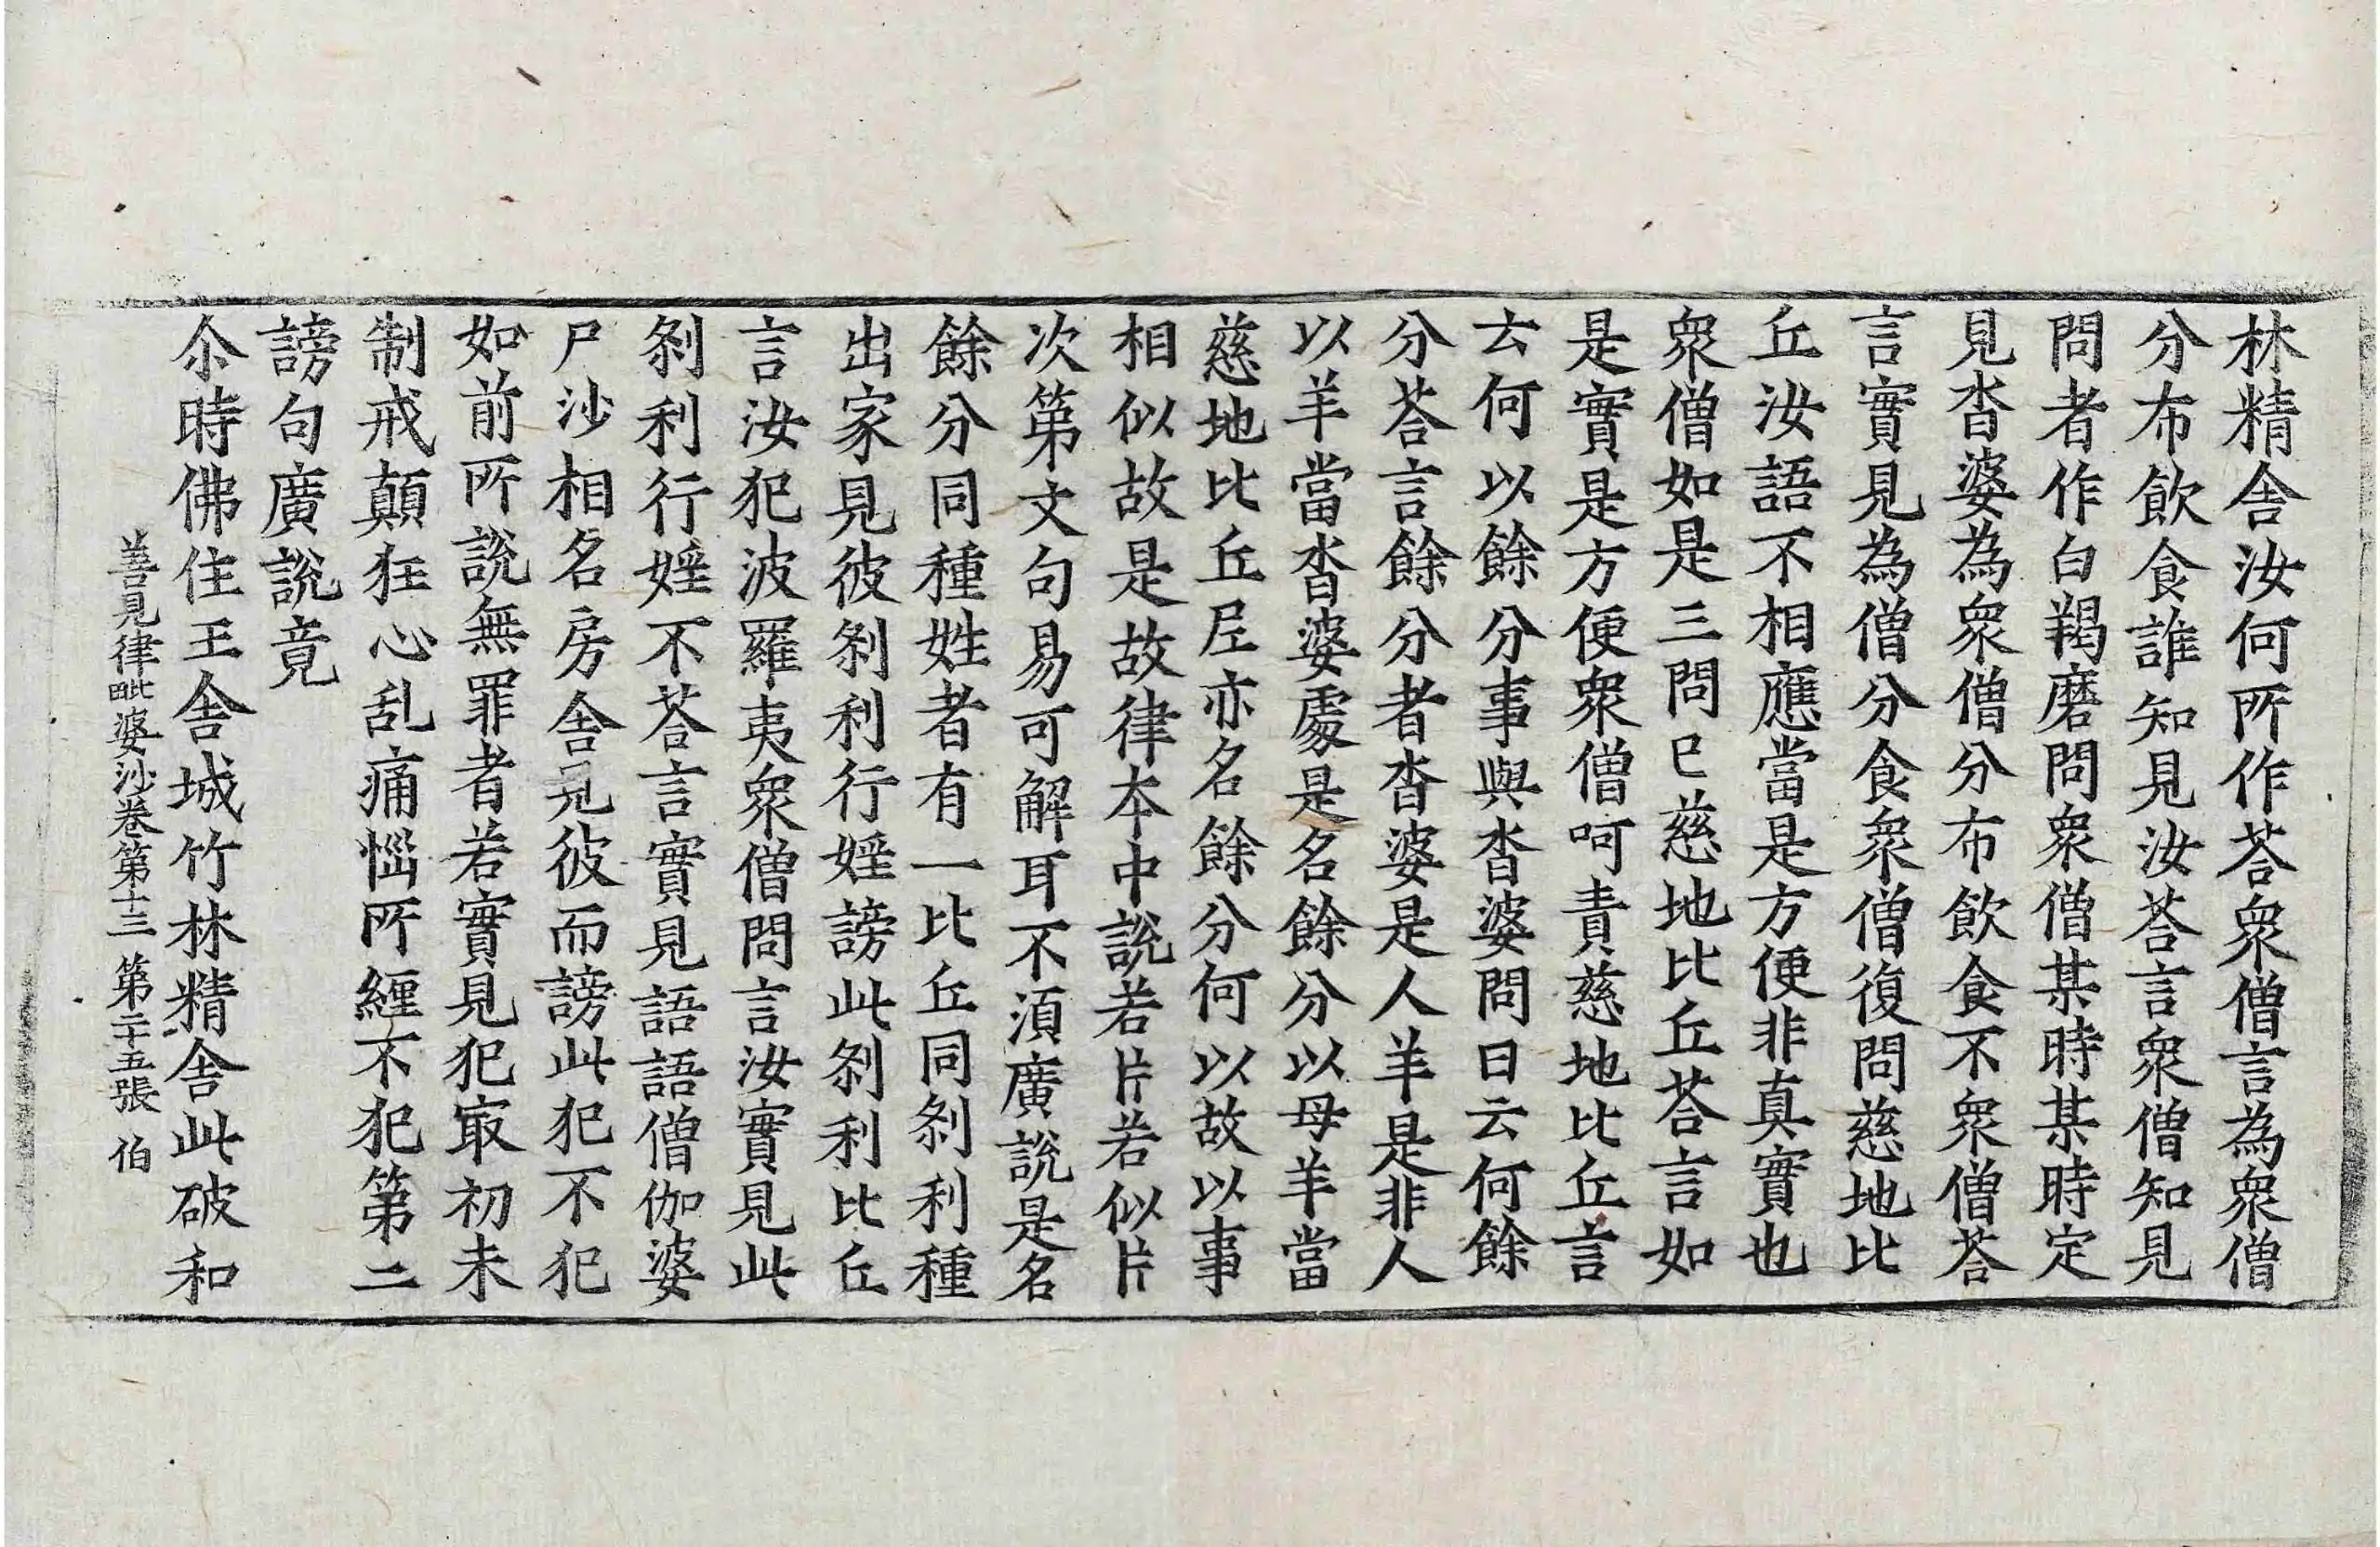 林精舍汝何所作荅衆僧言為衆僧
分布飲食誰知見汝荅言衆僧知見
問者作白羯磨問衆僧某時某時定
見沓婆為衆僧分布飲食不衆僧荅
言實見為僧分食衆僧復問慈地比
丘汝語不相應當是方便非真實也
衆僧如是三問已慈地比丘荅言如
是實是方便衆僧呵責慈地比丘言
云何以餘分事與沓婆問曰云何餘
分荅言餘分者沓婆是人羊是非人
以羊當沓婆處是名餘分以母羊當
慈地比丘尼亦名餘分何以故以事
相似故是故律本中說若片若似片
次第文句易可解耳不湏廣說是名
餘分同種姓者有一比丘同刹利種
出家見彼刹利行婬謗此刹利比丘
言汝犯波羅夷衆僧問言汝實見此
刹利行婬不荅言實見語語僧伽婆
尸沙相名房舍見彼而謗此犯不犯
如前所說無罪者若實見犯㝡初未
制戒顛狂心乱痛惱所纏不犯第二
謗句廣說竟
尒時佛住王舍城竹林精舍此破和
善見律毗婆沙卷第十三 第二十五張 伯